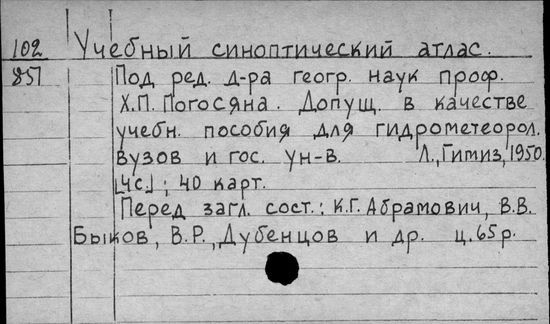 102 Учебный синоптический атлас.
851 Под ред. д-ра геогр. наук проф.
Х.П. Погосяна. Допущ. в качестве
учебн. пособия для гидрометеорол.
вузов и гос. ун-в. Л., Гимиз, 1950.
[4с.]; 40 карт.
Перед загл. сост.: К.Г. Абрамович, В.В.
Быков, В.Р., Дубенцов и др. ц. 65р.